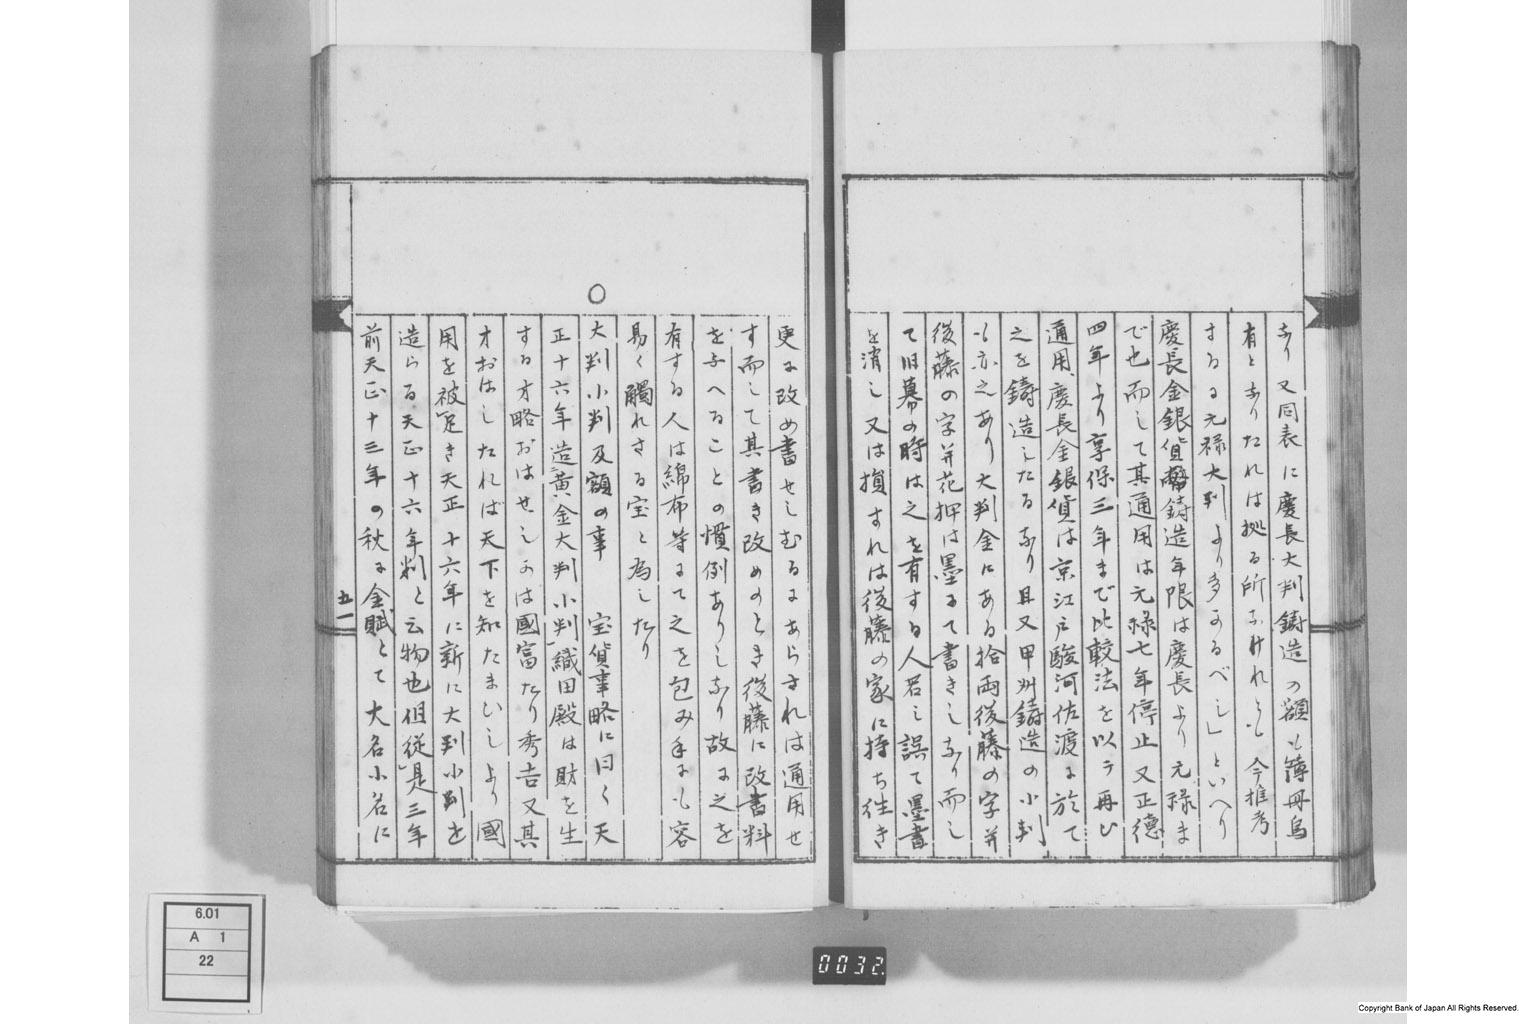 あり又同表に慶長大判鋳造の額も簿冊烏
有となりたれは拠る所なけれとも今推考
するる元禄大判より多かるべし」といへり
慶長金銀貨幣鋳造年限は慶長より元禄ま
で也而して其通用は元禄七年停止又正徳
四年より享保三年まで比較法を以テ再ひ
通用慶長金銀貨は京江戸駿河佐渡に於て
之を鋳造したるなり且又甲州鋳造の小判
も亦之あり大判金にある拾両後藤の字并
後藤の字并花押は墨にて書きしなり而し
て旧幕の時は之を有する人若し誤て墨書
を消し又は損すれは後藤の家に持ち往き
更に改め書せしむるにあらされは通用せ
す而して其書き改めのとき後藤に改書料
を与へることの慣例ありしなり故に之を
有する人は綿布等にて之を包み手にも容
易く触れさる宝と為したり
〇
大判小判及額の事 宝貨事略に曰く天
正十六年造黄金大判小判織田殿は財を生
する才略おはせしかは国富たり秀吉又其
才おはしたれば天下を知たまひしより国
用を被足き天正十六年に新に大判小判を
造らる天正十六年判と云物也但従是三年
前天正十三年の秋に金賦とて大名小名に
五一
6.01
A 1
22
0032.
Copyright Bank of Japan All Rights Reserved.